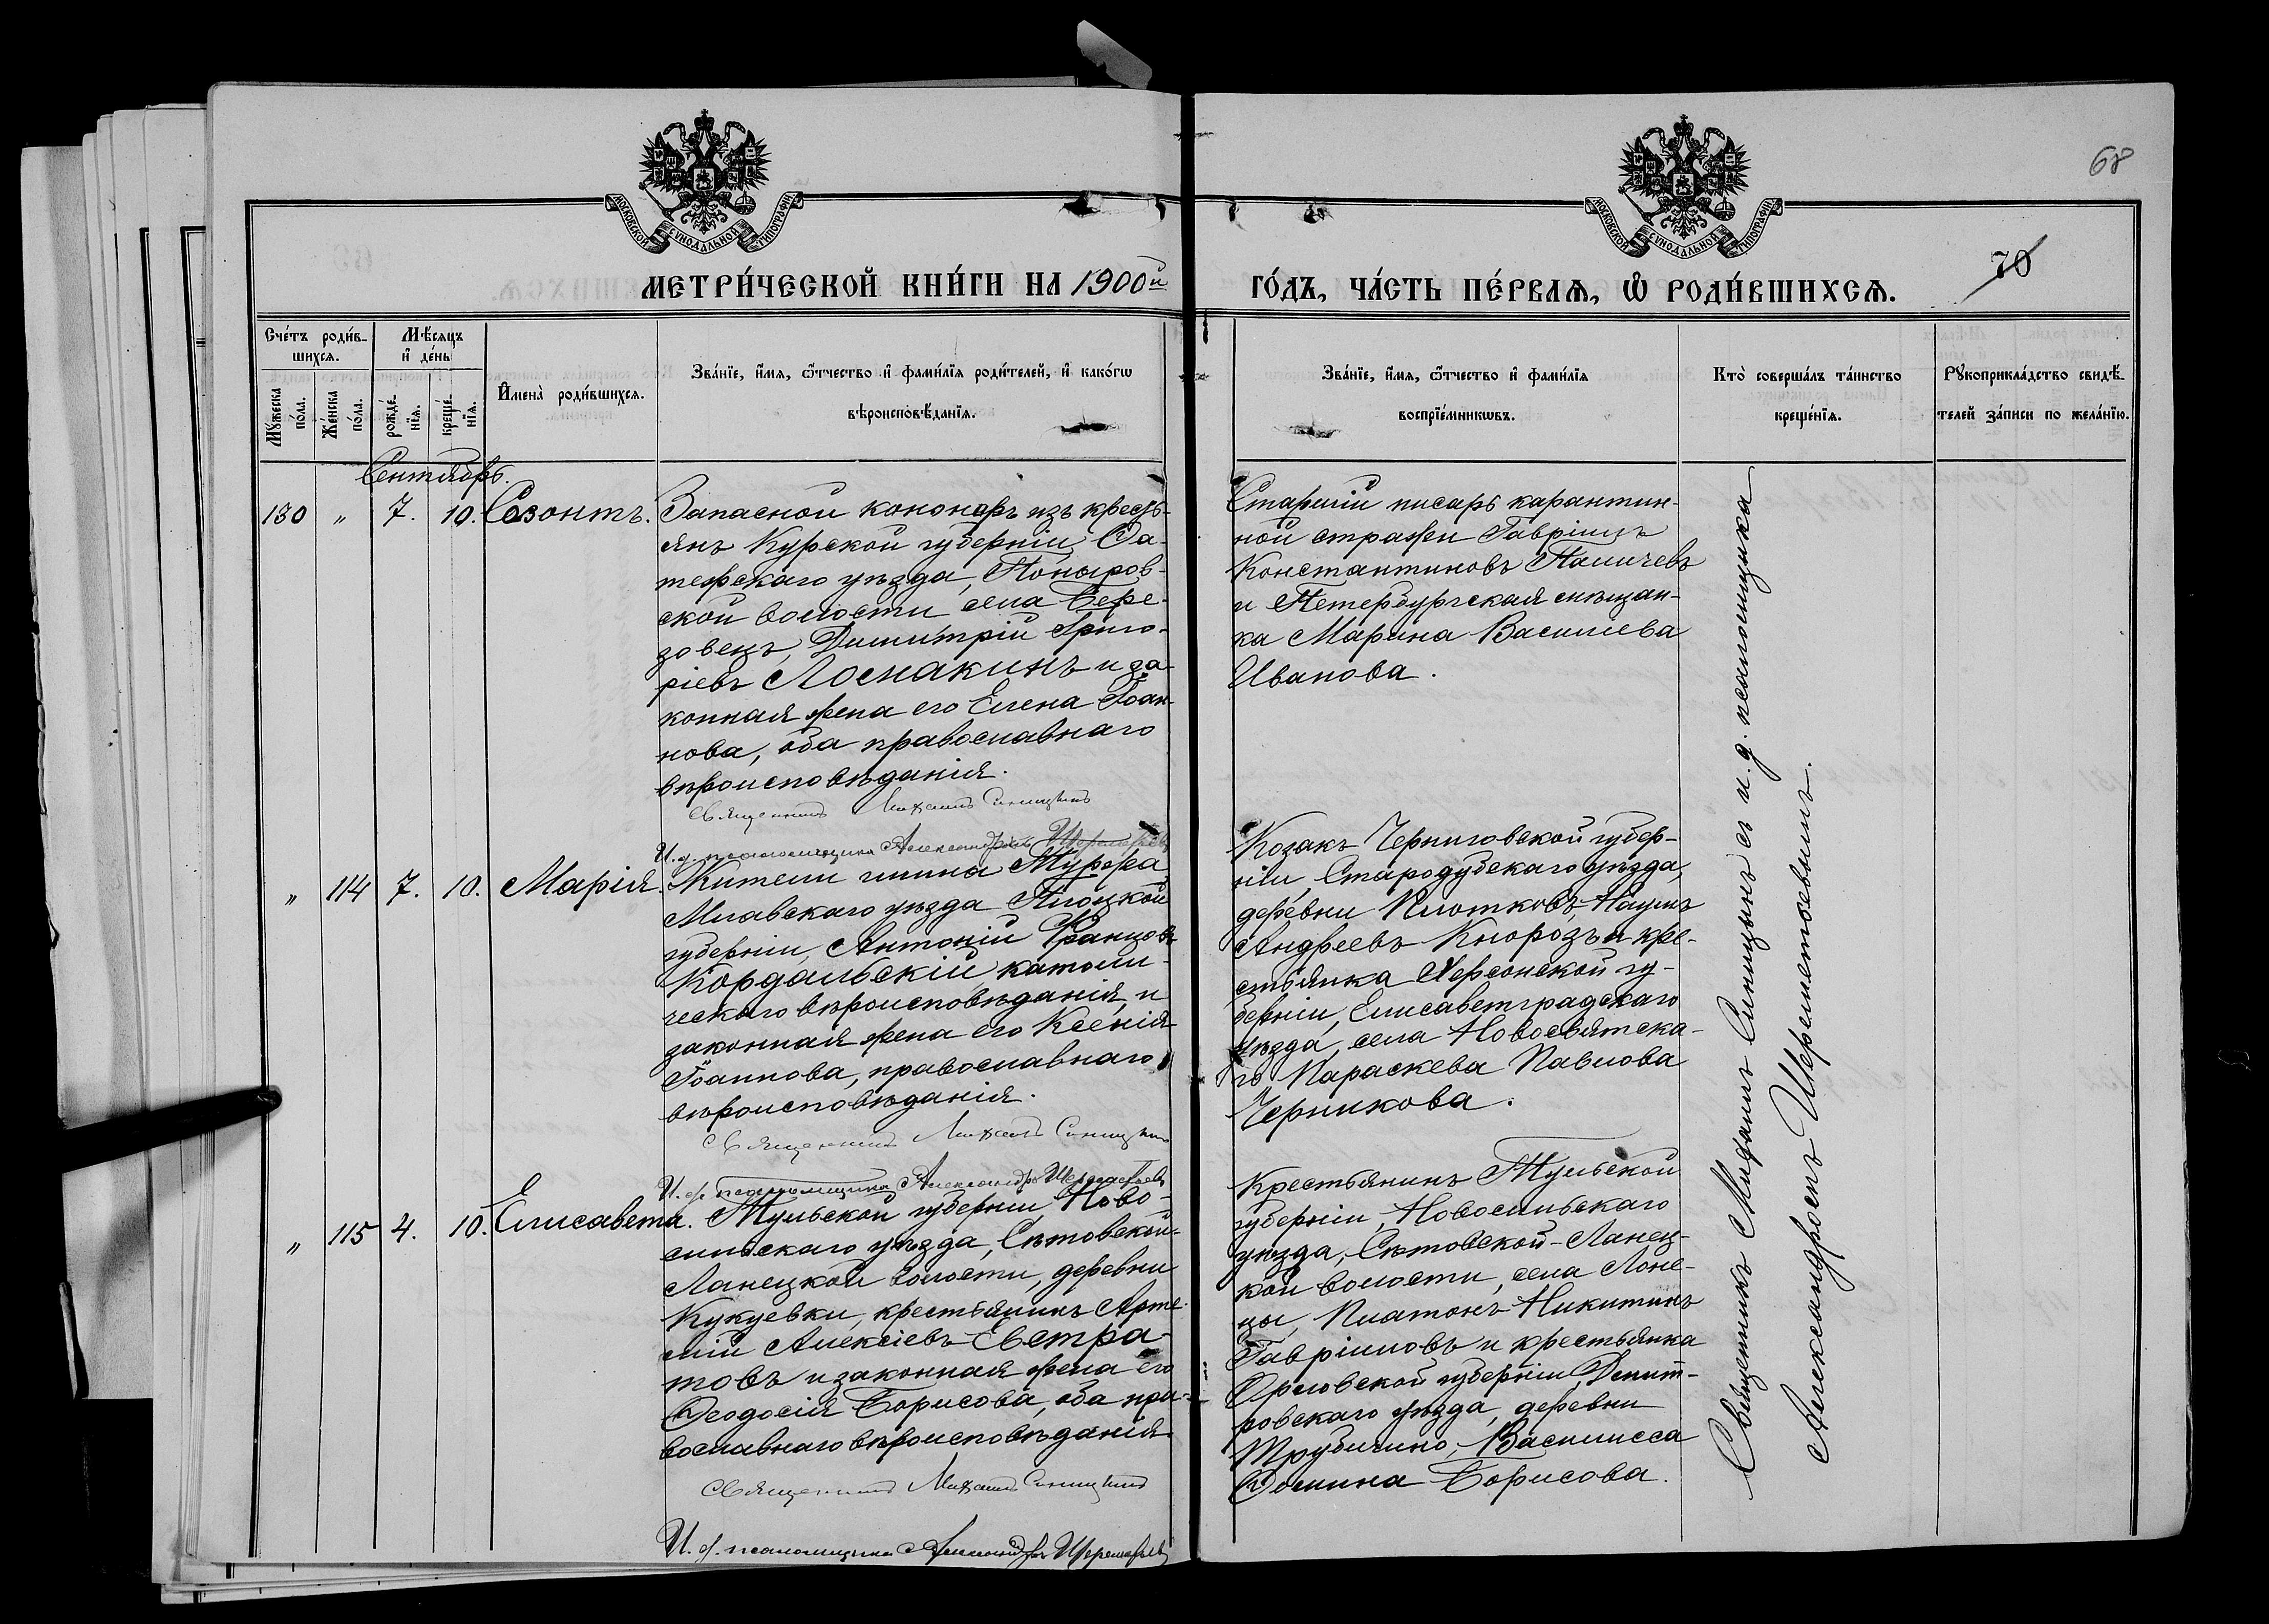 68
МОСКОВСКОЙ СУНОДАЛЬНОЙ ТИПОГРАФІИ
МОСКОВСКОЙ СУНОДАЛЬНОЙ ТИПОГРАФІИ
70
МЕТРИ́ЧЕСКОЙ КНИ́ГИ НА 1900й
ГО́ДЪ, ЧА́СТЬ ПЕ́РВАѦ, Ѡ РОДИ́ВШИХСѦ.
Сче́тъ роди́в-
шихсѧ.
Мѣ́сѧцъ
и҆ де́нь
Мꙋ́жеска
по́ла.
Же́нска
по́ла.
рожде́-
нїѧ.
креще́-
нїѧ.
И҆мена̀ роди́вшихсѧ.
Зва́нїе, и҆́мѧ, ѻ҆́тчество и҆ фами́лїѧ роди́телей, и҆ како́гѡ
вѣроисповѣ́данїѧ.
Зва́нїе, и҆́мѧ, ѻ҆́тчество и҆ фами́лїѧ
воспрїе́мникѡвъ.
Кто̀ соверша́лъ та́инство
креще́нїѧ.
Рꙋкоприкла́дство свидѣ́-
телей за́писи по жела́нїю.
Сентябрь.
130 „ 7. 10. Созонтъ.
Запасной канониръ изъ кресть-
янъ Курской губерніи, Фа-
тежскаго уѣзда, Поныров-
ской волости села Бере-
зовецъ, Димитрій Григо-
ріевъ Ломакинъ и за-
конная жена его Елена Іоан-
нова, оба православнаго
вѣроисповѣданія.
Священникъ Михаилъ Синицынъ
И. д. псаломщика Александръ
Старшій писарь карантин-
ной стражи Гавріилъ
Константиновъ Паничевъ
и Петербургская мѣщан-
ка Марина Васильева
Иванова.
„ 114 7. 10. Марія.
Житель гмина Туржа,
Млавскаго уѣзда Плоцкой
губерніи, Антоній Францовъ
Кордальскій, католи-
ческаго вѣроисповѣданія, и
законная жена его Ксенія
Іоаннова, православнаго
вѣроисповѣданія.
Священникъ Михаилъ Синицынъ
И. д. псаломщика Александръ
Козакъ Черниговской губер-
ніи, Стародубскаго уѣзда,
деревни Плотковъ, Наумъ
Андреевъ Кнорозъ и кре-
стьянка Херсонской гу-
берніи, Елисаветградскаго
уѣзда, села Новосвятска-
го Параскева Павлова
Черникова.
„ 115 4. 10. Елисавета.
Тульской губерніи Ново-
сильскаго уѣзда, Сѣтовской-
Ланецкой волости, деревни
Кукуевки, крестьянинъ Арте-
мій Алексіевъ Евстра-
товъ и законная жена его
Ѳеодосія Борисова, оба пра-
вославнаго вѣроисповѣданія.
Священникъ Михаилъ Синицынъ
И. д. псаломщика Александръ
Крестьянинъ Тульской
губерніи, Новосильскаго
уѣзда, Сѣтовской-Ланец-
кой волости, села Лоне-
цы, Платонъ Никитинъ
Гавриловъ и крестьянка
Орловской губерніи, Дмит-
ровскаго уѣзда, деревни
Трубичино, Василисса
Ѳомина Борисова.
Священникъ Михаилъ Синицынъ съ и. д. псаломщика
Александромъ Шереметьевымъ.